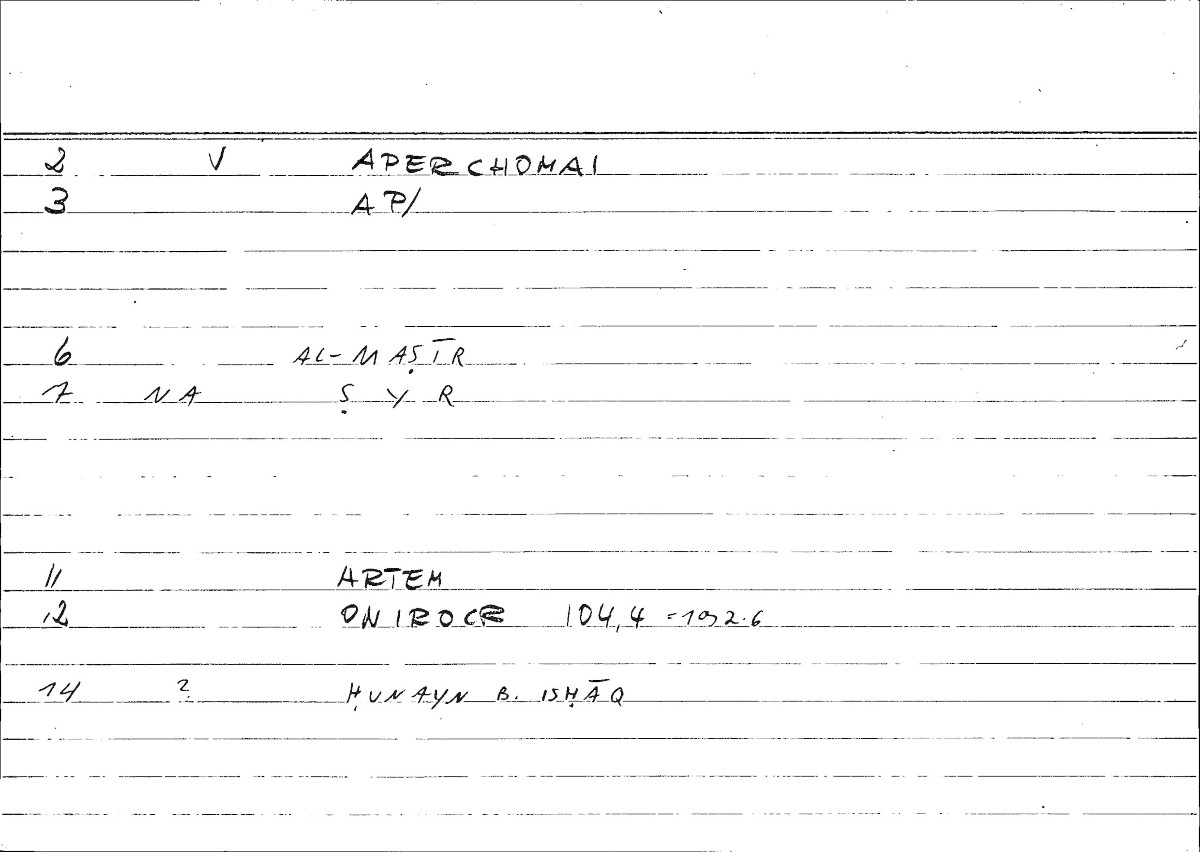 2 V APERCHOMAI
3 AP/
6 AL-MAṢĪR
7 NA Ṣ Y R
11 ARTEM
12 ONIROCR 104,4
14 ? ḤUNAYN B. ISḤĀQ